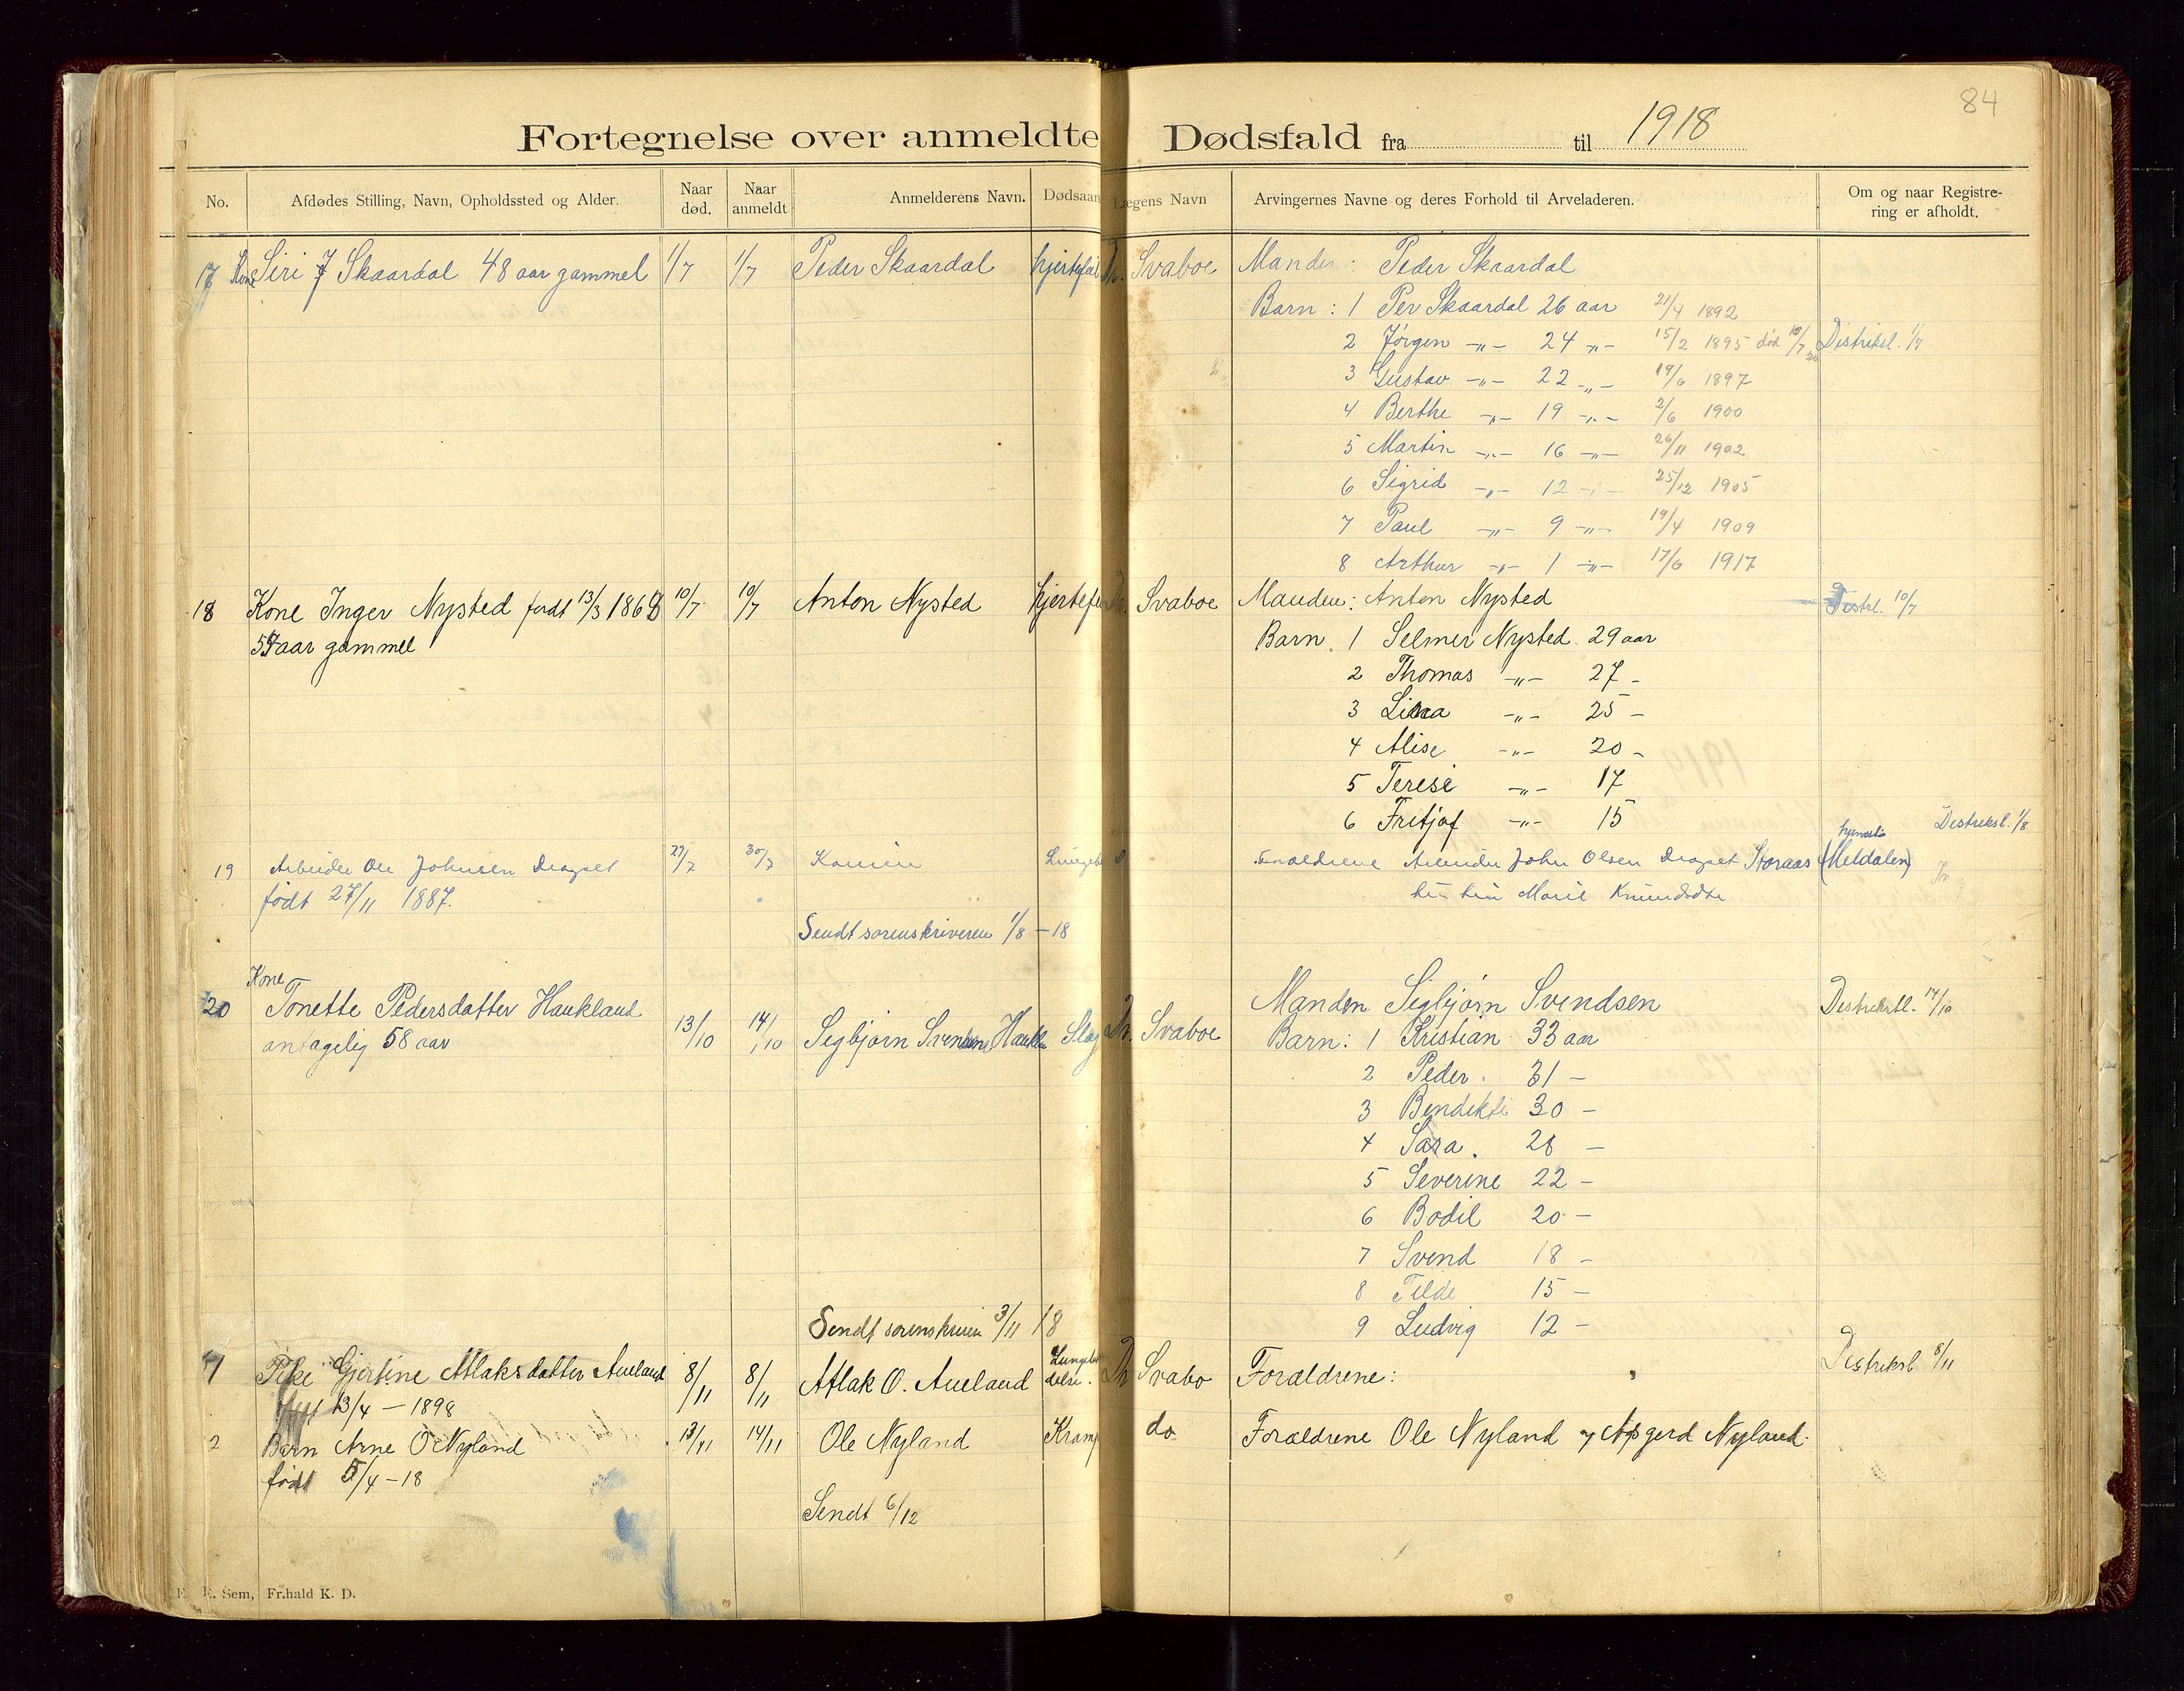 84
Fortegnelse over anmeldte Dødsfald fra til 1918
No. Afdødes Stilling, Navn, Opholdssted og Alder. Naar død. Naar anmeldt Anmelderens Navn. Dødsaar Lægens Navn Arvingernes Navne og deres Forhold til Arveladeren. Om og naar Registrering er afholdt.
17 Kone Siri J Skaardal 48 aar gammel 1/7 1/7 Peder Skaardal hjertefeil Dr. Svaboe Manden: Peder Skaardal
Barn: 1 Per Skaardal 26 aar 21/4 1892
2 Jørgen -"- 24 -"- 15/2 1895 død 10/7 20 Distriksl. 1/7
3 Gustav -"- 22 -"- 19/6 1897
4 Berthe -"- 19 -"- 2/6 1900
5 Martin -"- 16 -"- 26/11 1902
6 Sigrid -"- 12 -"- 25/12 1905
7 Paul -"- 9 -"- 19/4 1909
8 Arthur -"- 1 -"- 17/6 1917
18 Kone Inger Nysted født 13/3 1868 10/7 10/7 Anton Nysted hjertefe Dr. Svaboe Manden: Anton Nysted Distrl. 10/7
aar gammel Barn. 1 Selmer Nysted 29 aar
2 Thomas -"- 27 -
3 -"- 25 -
4 Alise -"- 20 -
5 Terese -"- 17
6 Fritjof -"- 15 Distriksl. 1/8
19 Arbeider Ole Johnsen Dragset 27/7 30/7 Lungebe Forældrene Arbeider John Olsen Dragset Storaas (Meldalen)
født 27/11 1887. Marie
Sendt sorenskriveren 1/8 - 18
Kone
20 Tonette Pedersdatter Haukland 13/10 14/10 Sigbjørn Svendsen Haukla Slag Dr. Svaboe Manden Sigbjørn Svendsen Distrikstl. 14/10
antagelig 58 aar Barn: 1 Kristian 33 aar
2 Peder 31 -
3 Bendikte 30 -
4 Sara. 28 -
5 Severine 22 -
6 Bodil 20 -
7 Svend 18 -
8 Tilde 15 -
9 Ludvig 12 -
Sendt sorenskriven 3/11 18
1 Pike Gjertine Atlaksdatter Aueland 8/11 8/11 Atlak O. Aueland Lungebe- delse. Dr Svabo Forældrene: Distriksl 8/11
født 13/4 - 1898
2 Barn Arne O Nyland 13/11 14/11 Ole Nyland Kramp do Forældrene Ole Nyland og Asgerd Nyland.
født 5/4 - 18
Sendt 6/12
E. Sem, Fr.hald K. D.